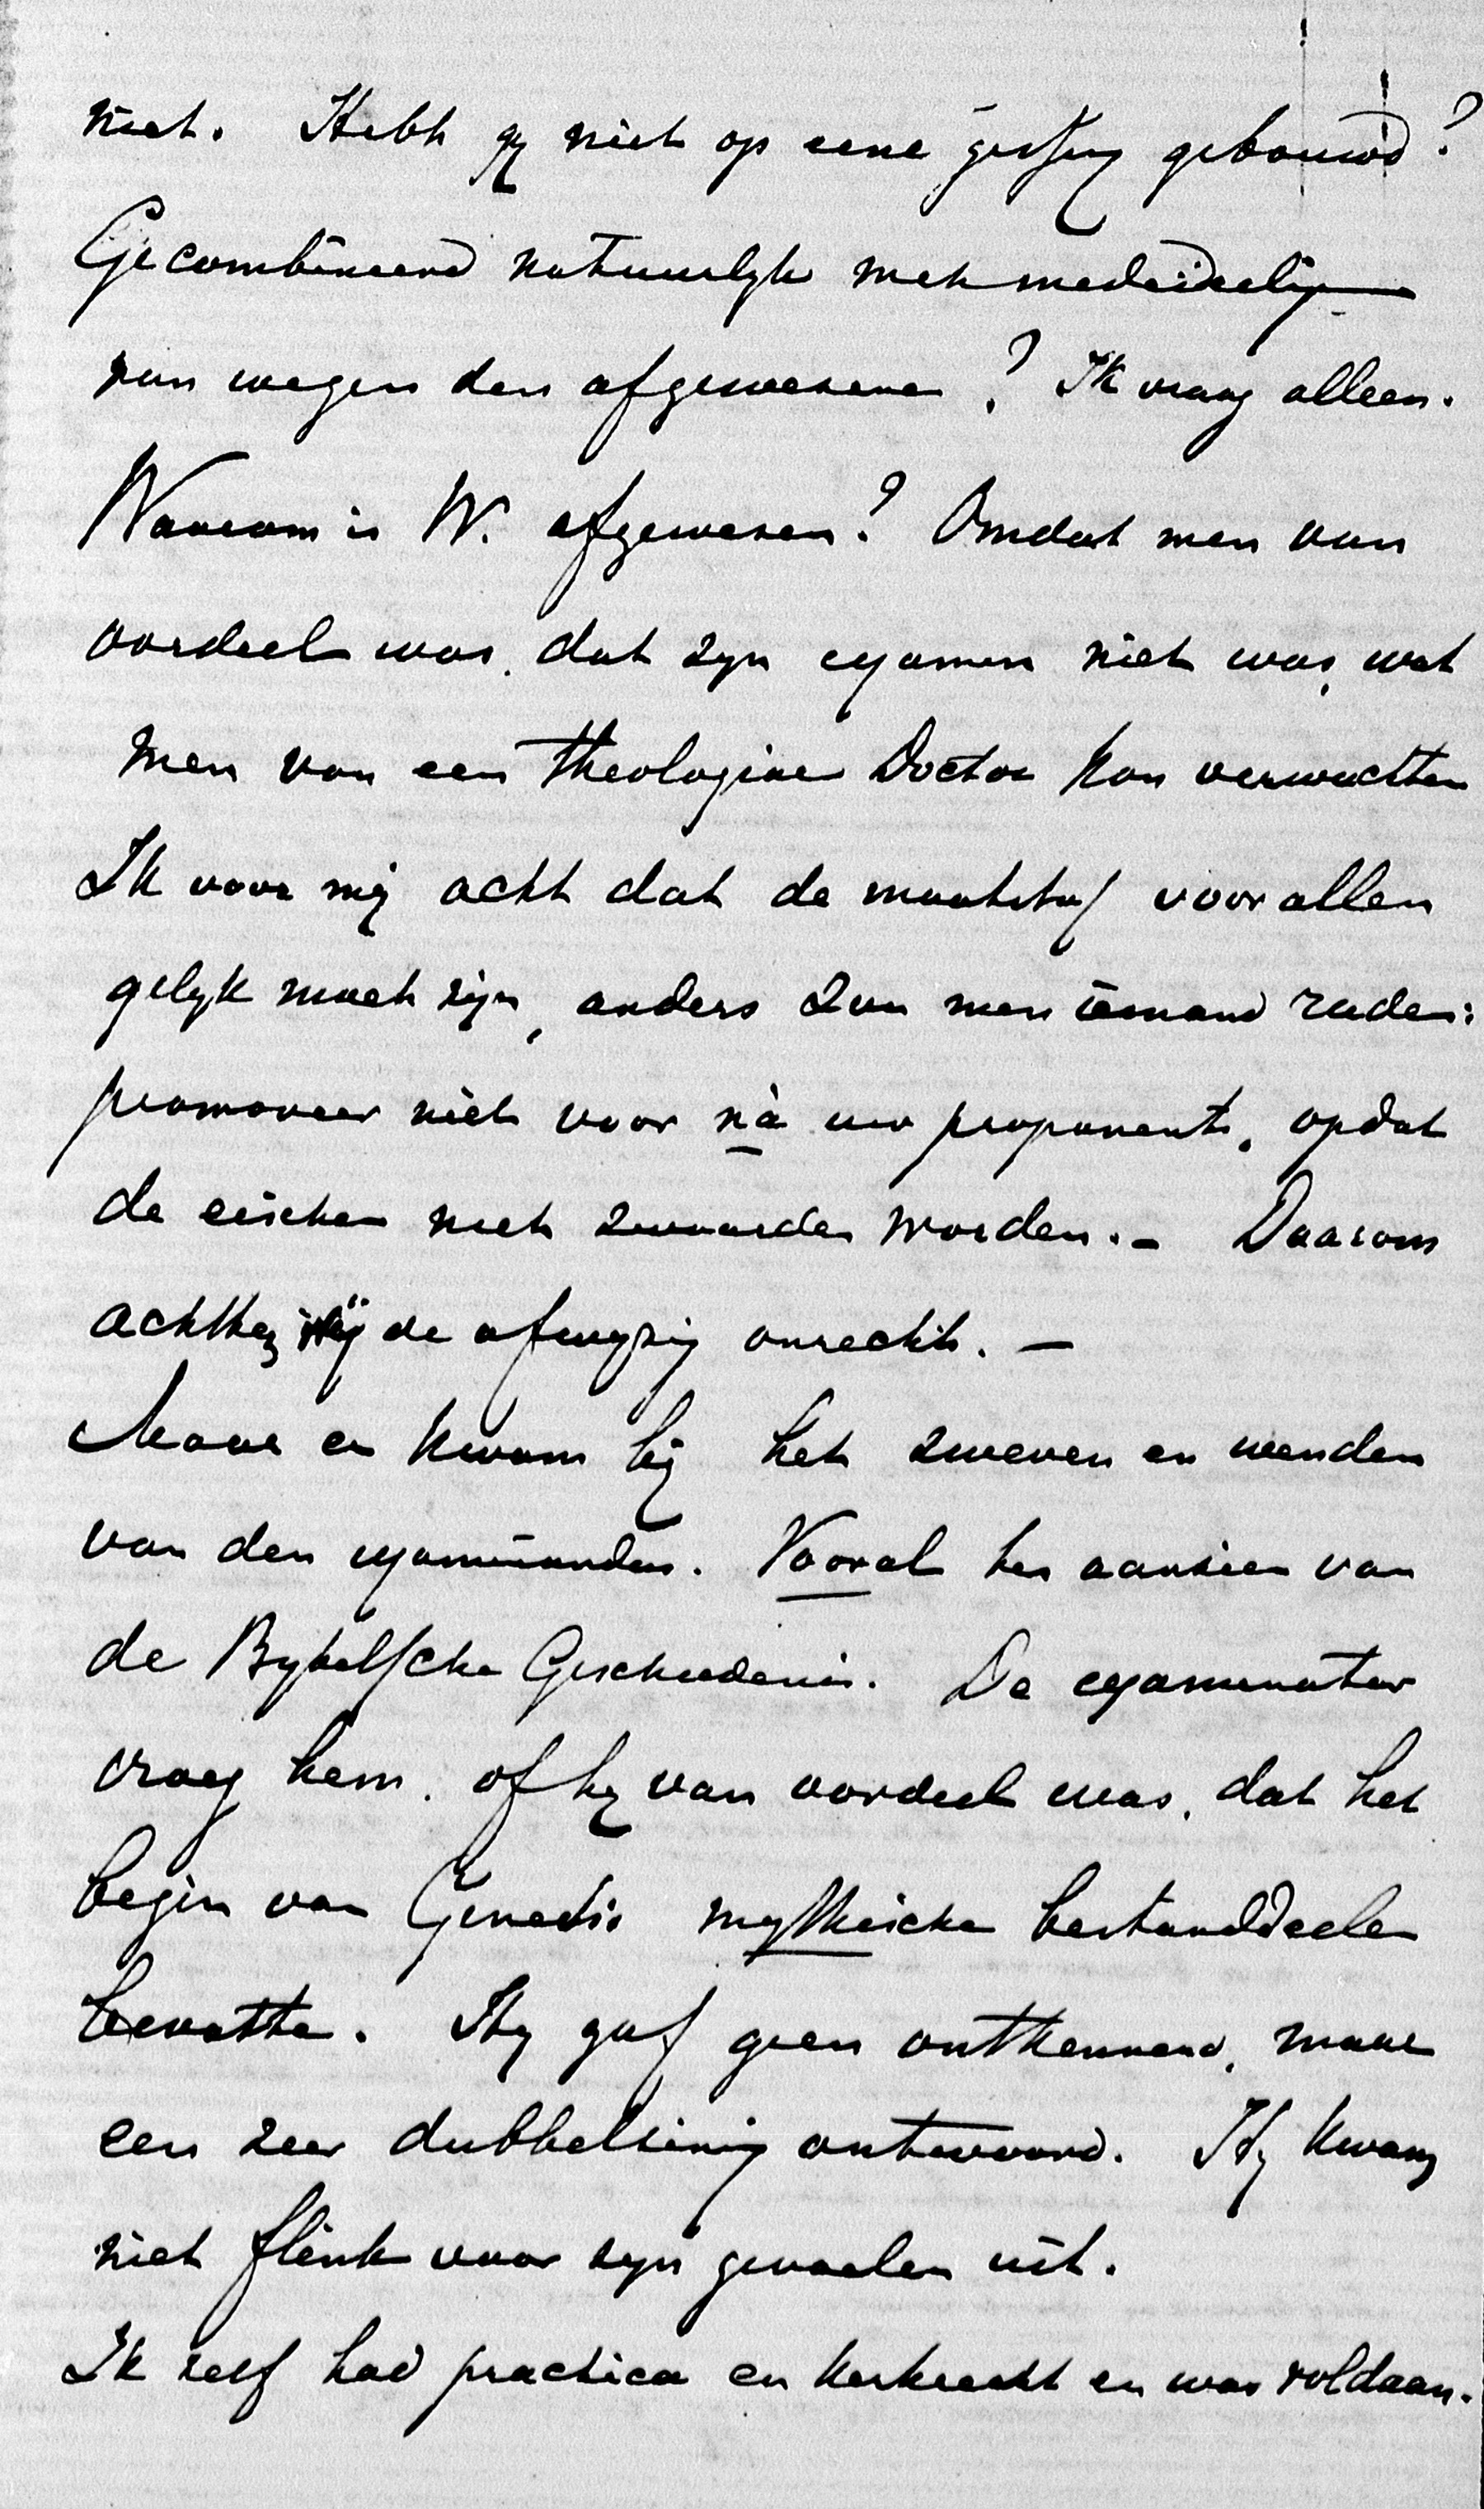 niet. Hebt gy niet op eene gissing gebouwd?
Gecombineerd natuurlyk met mededeeling
van wegen den afgewezene? Ik vraag alleen.
Waarom is W. afgewezen? Omdat men van
oordeel was, dat zyn examen niet was, wat
men van een Theologiae Doctor kan verwachten
Ik voor mij acht dat de maatstaf voor allen
gelyk moet zijn, anders zou men iemand raden:
promoveer niet voor nà uw proponents, opdat
de eischen niet zwaarder worden. – Daarom
achtte de afwyzing onrecht. –
Maar er kwam bij het zweven en wenden
van den examinandus. Vooral ten aanzien van
de Bybelsche Geschiedenis. De examinator
vroeg hem, of hy van oordeel was, dat het
begin van Genesis mythische bestanddeelen
bevatte. Hy gaf geen ontkennend, maar
een zeer dubbelzinnig antwoord. Hy kwam
niet flink voor zyn gevoelen uit.
Ik zelf had practica en kerkrecht en was voldaan.